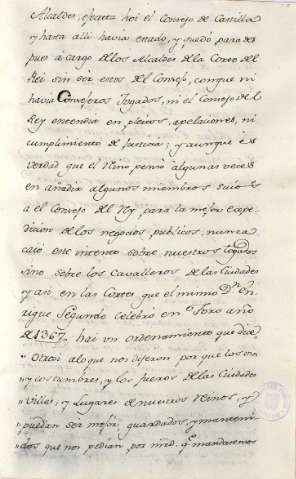 Alcaldes, exerita hoi el Consejo de Castilla
y hasta alli havia estado, y quedó para des
pues a cargo de los Alcaldes de la Corte del
Rei sin ser estos del Consejo, conque ni
havia Consejeros Togados, ni el Consejo del
Rey entendia en pleitos, apelaciones, ni
cumplimiento de Justicia; y aunque es
verdad que el Reino pensó algunas veces
en añadir algunos miembros suios
a el Consejo del Rey para la mejor expe-
dicion de los negocios publicos, nunca
cayó este intento sobre nuestros Togados
sino sobre los Cavalleros de las Ciudades
y asi en las Cortes que el mismo Dn. En-
rique Segundo celebró en Toro año
de 1367, hai un ordenamiento que dice
Otrosi alo que nos dijeron por que los usos
" y costumbres, y los fueros de las Ciudades
" Villas, y Lugares de nuestros Reinos,
" puedan ser mejor guardados, y manteni
" dos que nos pedian por mrd. q. mandasemos